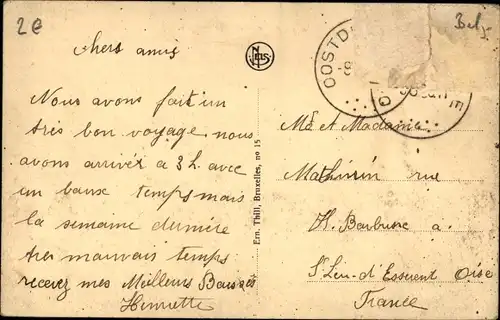 2e
Bels
Chers amis
Nels
OOSTD
Nous avons fait un
très bon voyage nous
avons arrivér a 3h. avec
un baux temps mais
la semaine dernière
tres mauvais temps
recevez mes Meilleurs Baisers
Henriette
Ern. Thill, Bruxelles, no 15
Mr et Madame
Mathurin rue
H. Barbusse a.
St Leu-d'Esserent Oise
France